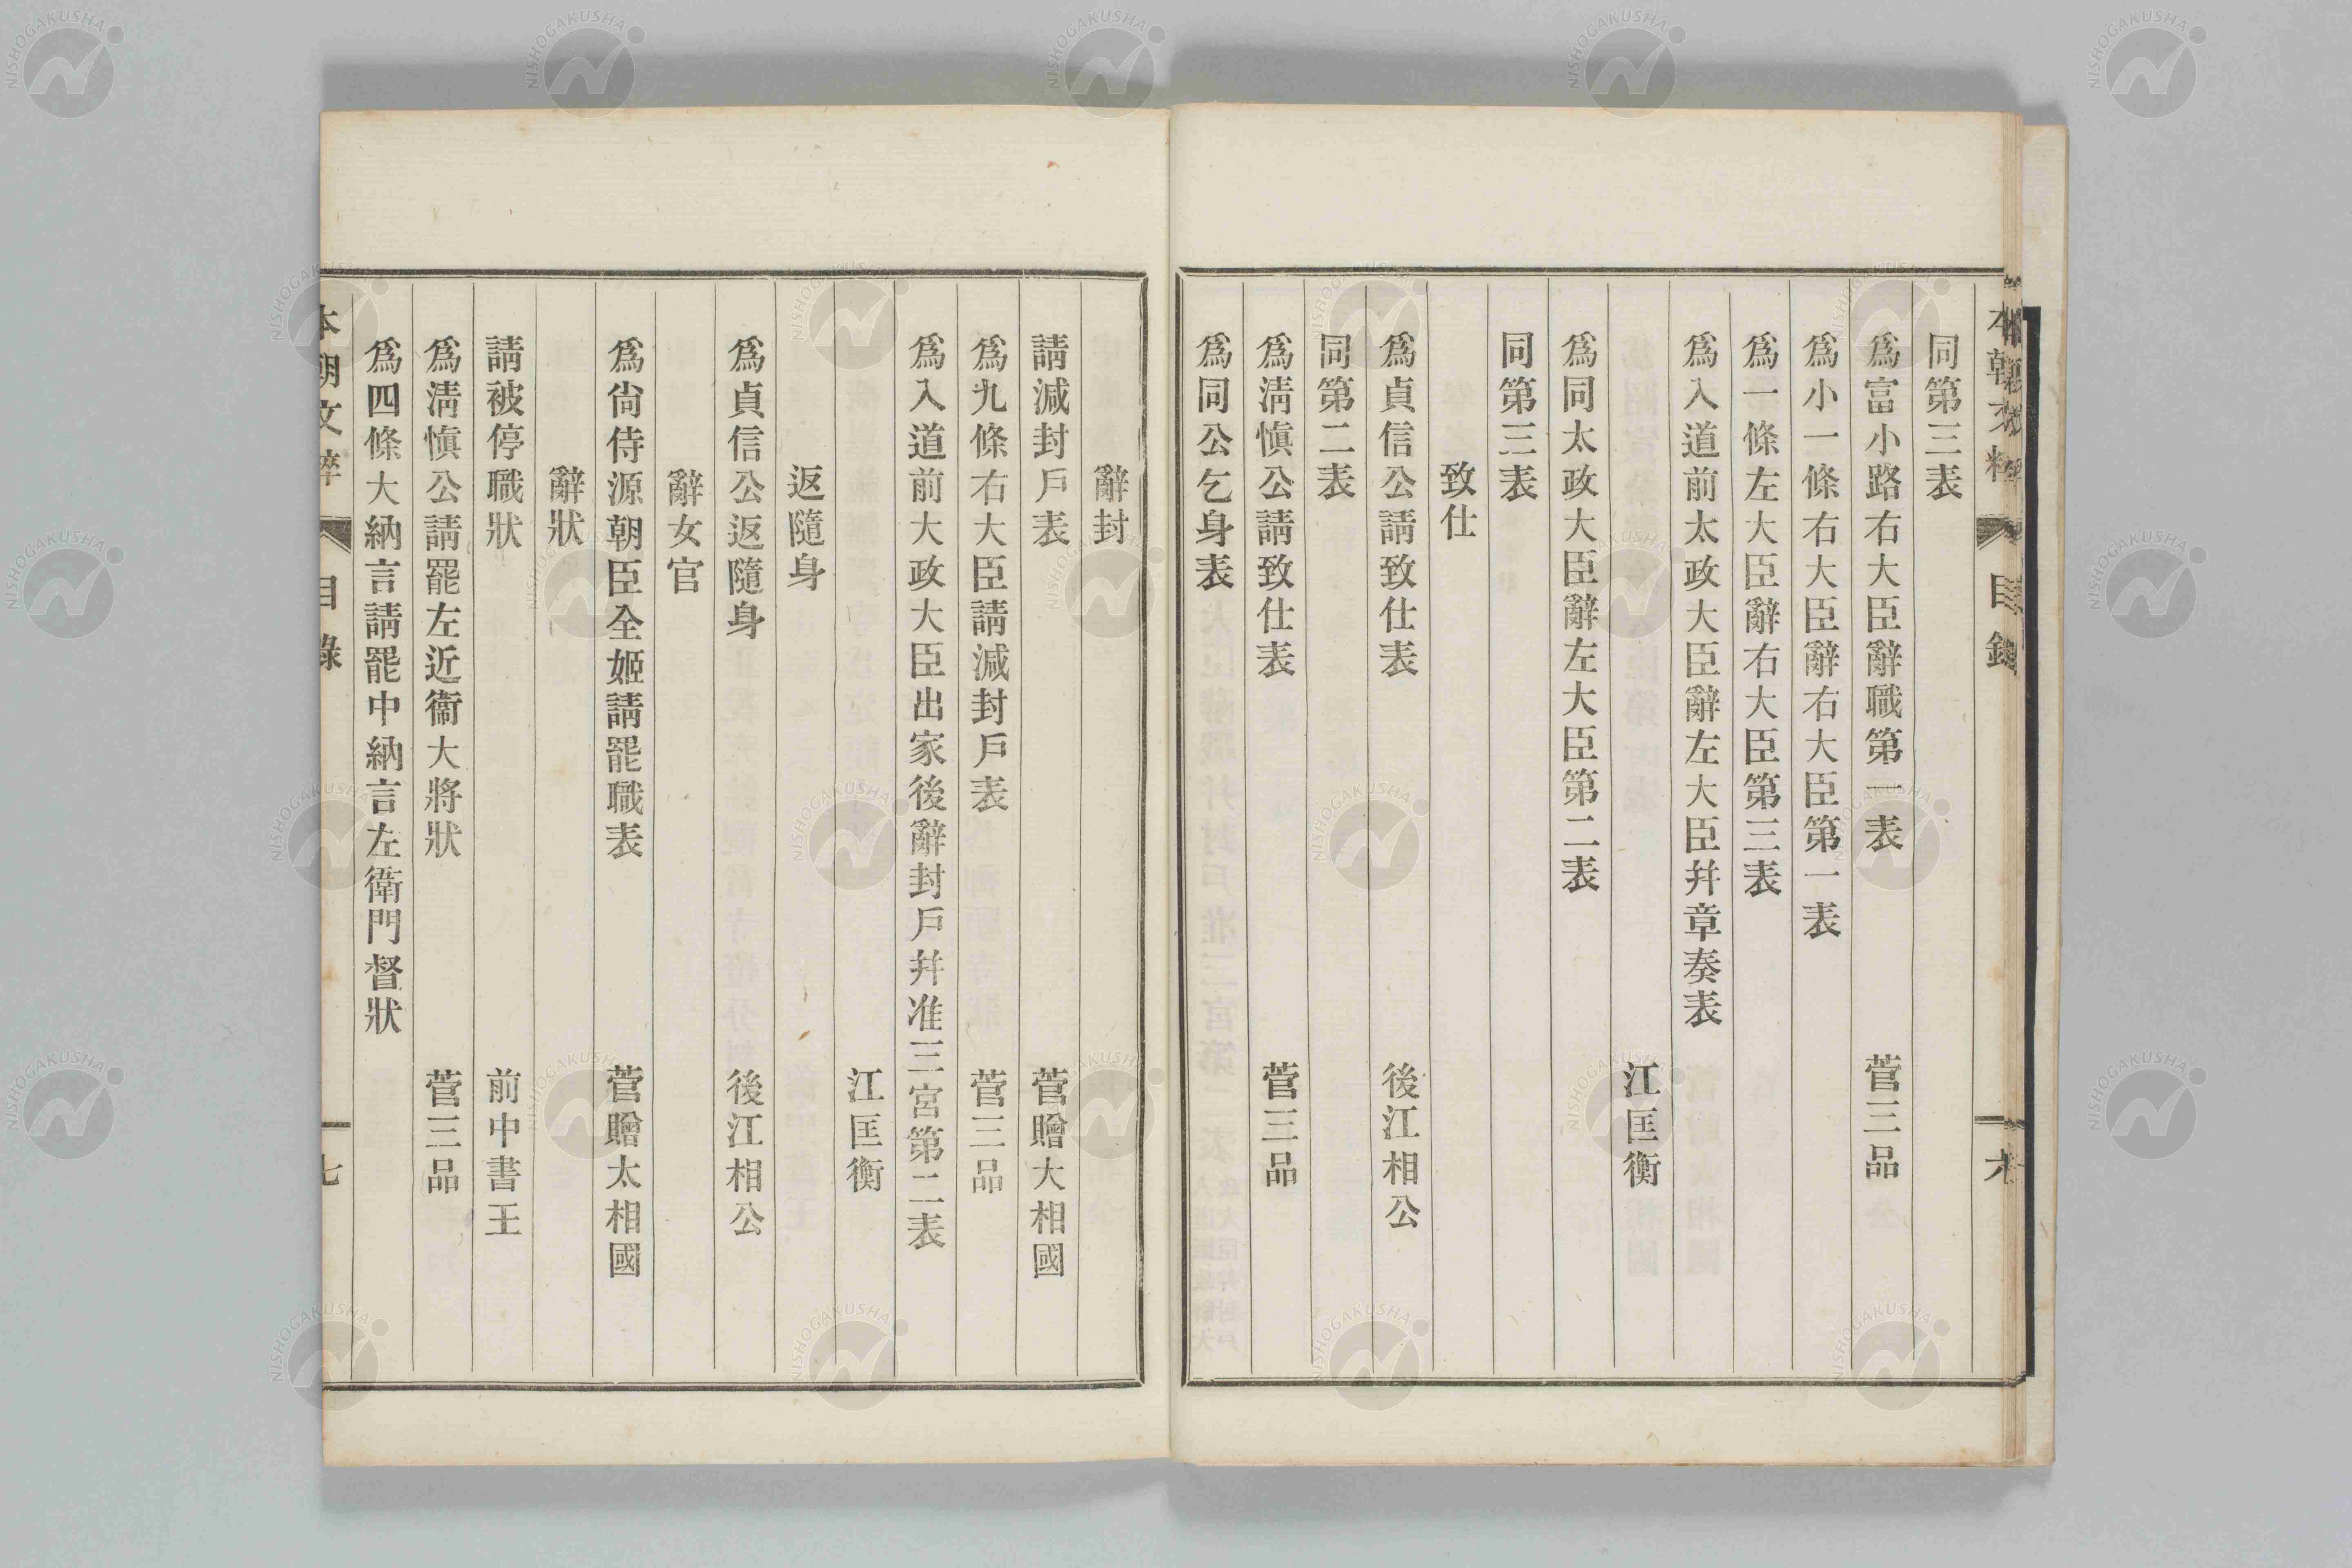 同第三表
爲富小路右大臣辭職第一表 菅三品
爲小一條右大臣辭右大臣第一表
爲一條左大臣辭右大臣第三表
爲入道前太政大臣辭左大臣幷章奏表
江匡衡
爲同太政大臣辭左大臣第二表
同第三表
致仕
爲貞信公請致仕表 後江相公
同第二表
爲淸愼公請致仕表 菅三品
爲同公乞身表
辭封
請減封戶表 菅贈大相國
爲九條右大臣請減封戶表 菅三品
爲入道前大政大臣出家後辭封戶幷准三宮第二表
江匡衡
返隨身
爲貞信公返隨身 後江相公
辭女官
爲尙侍源朝臣全姬請罷職表 菅贈太相國
辭狀
請被停職狀 前中書王
爲淸愼公請罷左近衞大將狀 菅三品
爲四條大納言請罷中納言左衛門督狀
本朝文粹 目錄 七
NISHOGAKUSHA